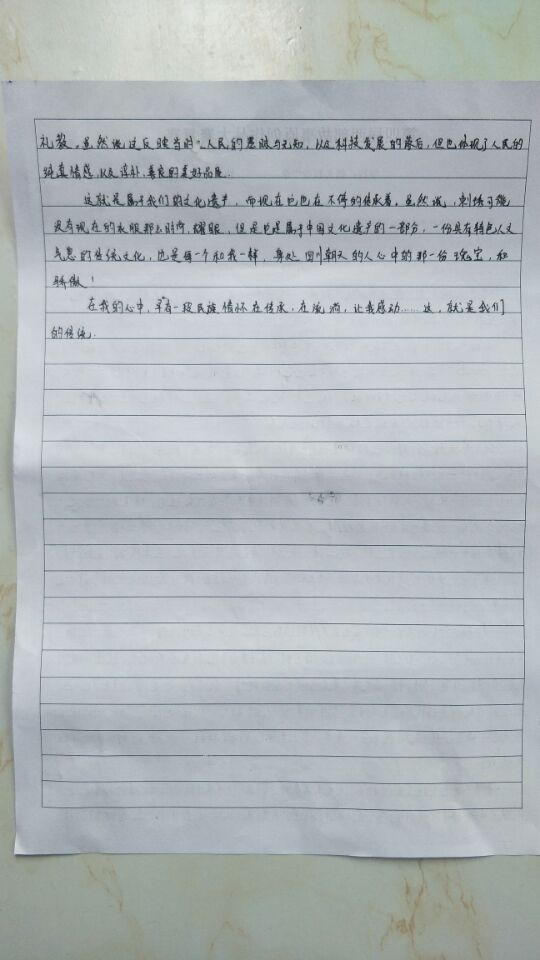 礼教。虽然说这反映当时人民的愚昧与无知，以及科技发展的落后，但也体现了人民的
纯真情感，以及淳朴、善良的美好品质。
这就是属于我们的文化遗产，而现在它也在不停的传承着。虽然说，刺绣可能
没有现在的衣服那么时尚、耀眼，但是它是属于中国文化遗产的一部分，一份具有特色人文
气息的传统文化，也是每一个和我一样，身处四川朝天的人心中的那一份瑰宝，和
骄傲！
在我的心中，早有一段民族情怀在传承，在流淌，让我感动……这，就是我们
的传统.